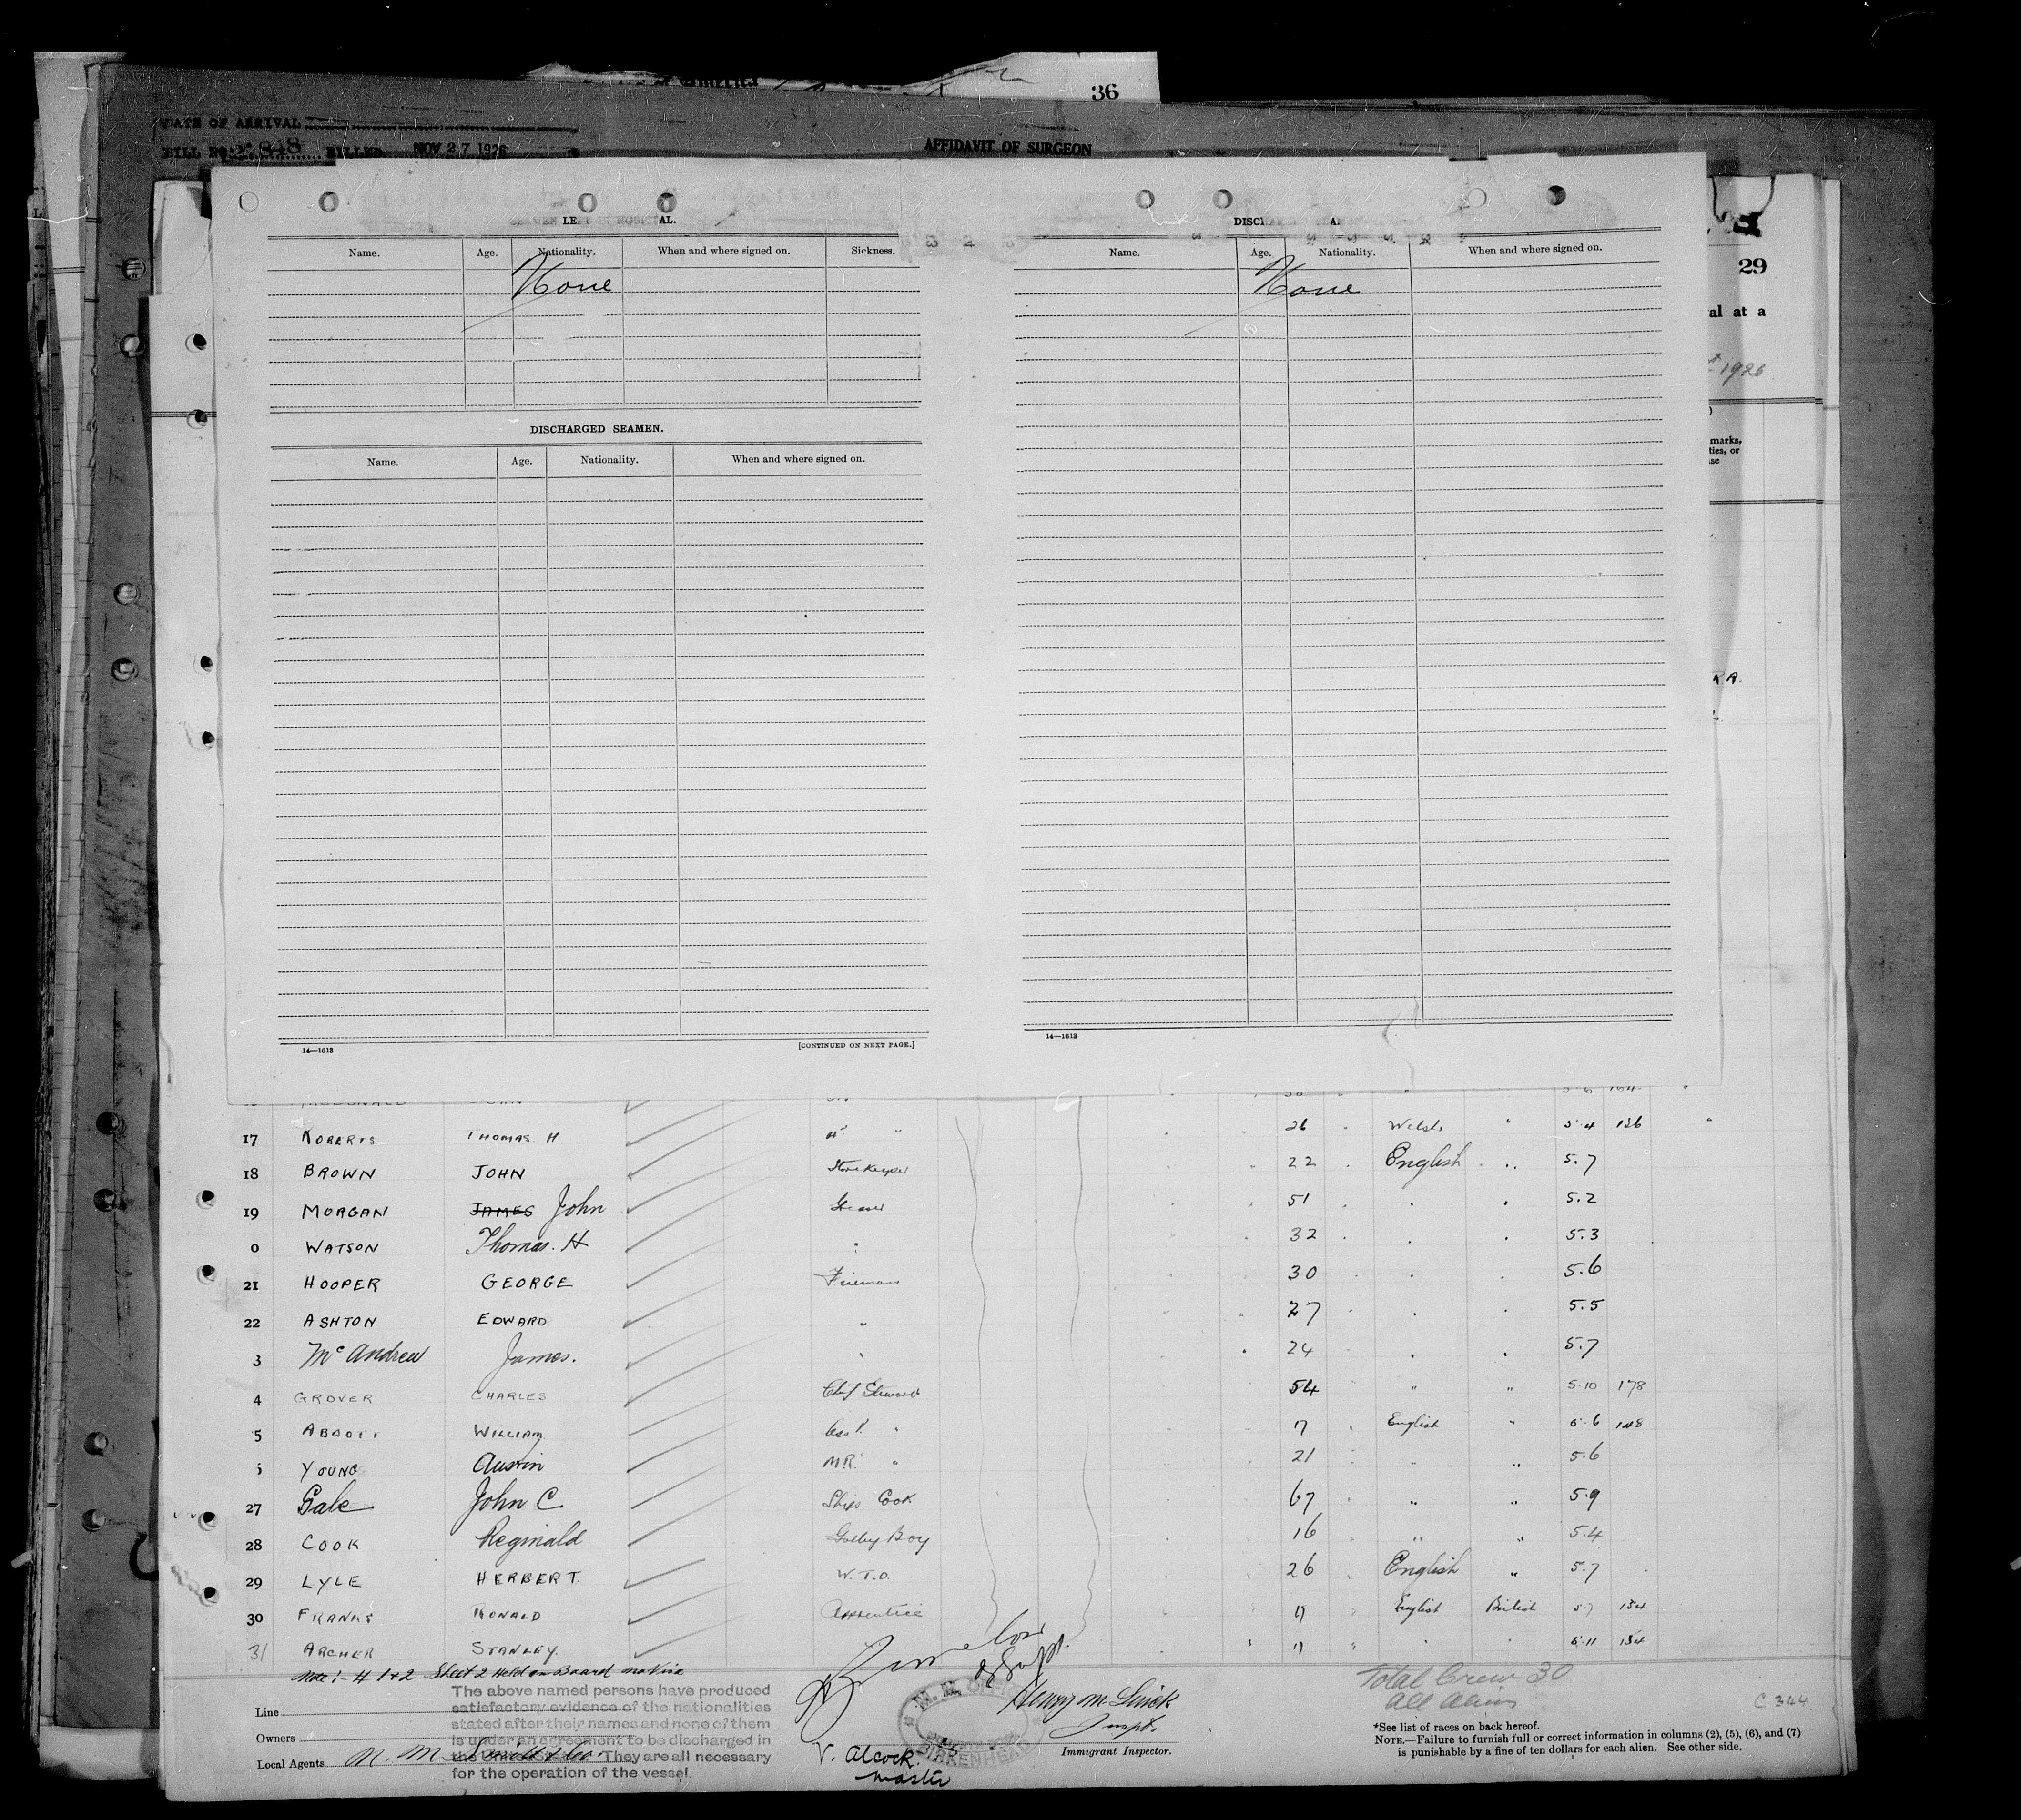 36
DATE OF ARRIVAL
BILL NO. 848 BILLED NOV 27 1926
AFFIDAVIT OF SURGEON
SEAMEN LEFT IN HOSPITAL.
Name. Age. Nationality. When and where signed on. Sickness.
None
DISCHARGED SEAMEN.
Name. Age. Nationality. When and where signed on.
14—1613 [CONTINUED ON NEXT PAGE.]
Name. Age. Nationality. When and where signed on.
None
14—1613
29
val at a
1926
marks,
ties, or
se
17 ROBERTS THOMAS H. " 26 Welsh " 5.4 136 "
18 BROWN JOHN Storekeeper 22 English 5.7
19 MORGAN JAMES John Greaser 51 5.2
0 WATSON Thomas. H 32 5.3
21 HOOPER GEORGE Fireman 30 5.6
22 ASHTON EDWARD " 27 5.5
3 McAndrew James. 24 5.7
4 GROVER CHARLES Chief Steward 54 " " 5.10 178
5 ABBOTT WILLIAM Asst " 17 English " 5.6 148
YOUNG Austin M.R. " 21 " " 5.6
27 Gale John C Ships Cook 67 " " 5.9
28 COOK Reginald Galley Boy 16 " " 5.4
29 LYLE HERBERT. W.T.O. 26 English " 5.7
30 FRANKS RONALD Apprentice 17 English British 5.7 134
31 ARCHER STANLEY. 17 " 5.11 154
Note:- # 1+2 Sheet 2 Held on Board no Visa
The above named persons have produced
satisfactory evidence of the nationalities
stated after their names and none of them
is under an agreement to be discharged in
They are all necessary
for the operation of the vessel.
Line
Owners
Local Agents
V. Alcock.
master
BIRKENHEAD
Inspt.
Immigrant Inspector.
Total Crew 30
All Aliens
C 344
*See list of races on back hereof.
NOTE.—Failure to furnish full or correct information in columns (2), (5), (6), and (7)
is punishable by a fine of ten dollars for each alien. See other side.